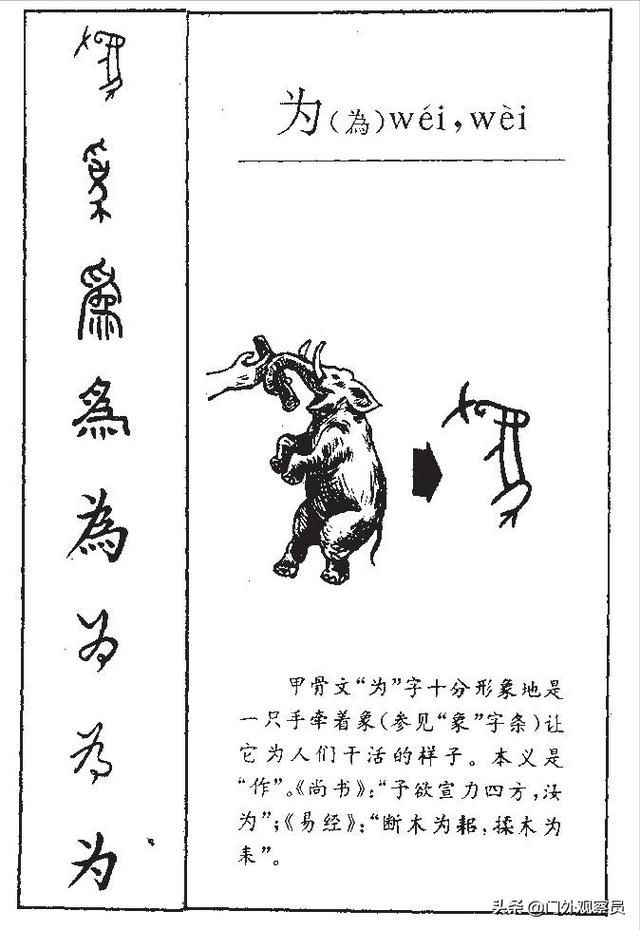 为(為)wéi,wèi
爲
為
为
為
为
甲骨文“为”字十分形象地是
一只手牵着象(参见“象”字条)让
它为人们干活的样子。本义是
“作”。《尚书》:“予欲宣力四方,汝
为”;《易经》:“断木为耜,揉木为
耒”。
头条 @门外观察员